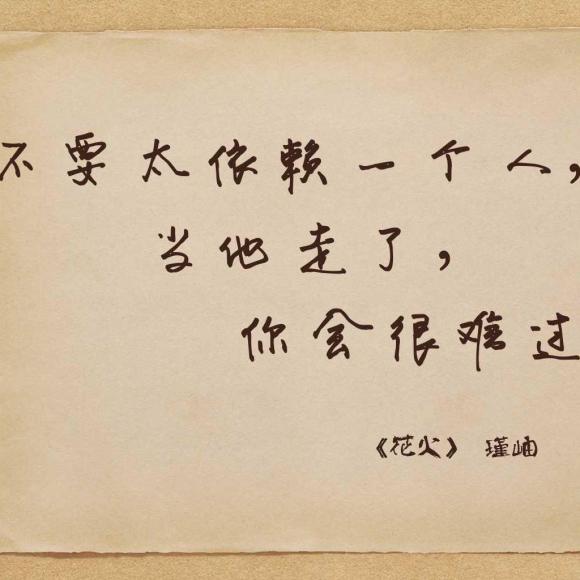 不要太依赖一个人,
当他走了,
你会很难过
《花火》 瑾岫